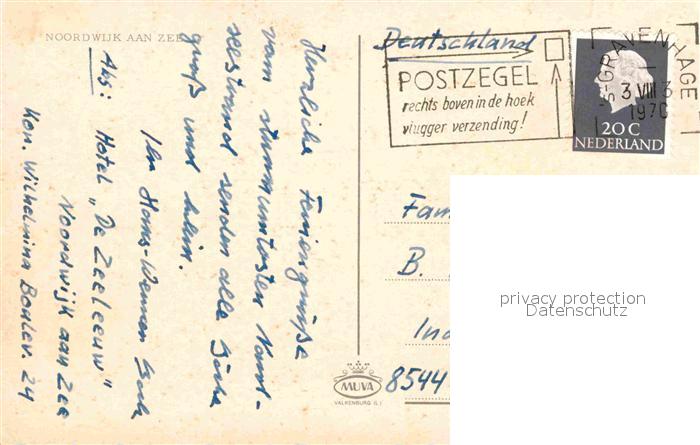 NOORDWIJK AAN ZEE
Herzliche Feriengrüße
vom sturmumtosten Nord-
seestrand senden alle
groß und klein.
Ihr Hans-Werner
Abs: Hotel „De Zeeleeuw"
Noordwijk aan Zee
Kon. Wilhelmina Boulev. 24
Deutschland
POSTZEGEL
rechts boven in de hoek
vlugger verzending!
'S-GRAVENHAGE
3 VIII 3
1970
20 C
NEDERLAND
Fam
B.
Ind
8544
MUVA
VALKENBURG (L.)
privacy protection
Datenschutz